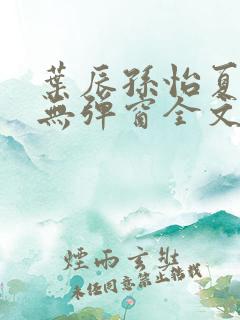 葉辰孫怡夏
無彈窗全文
煙雨玄裝
未經同意禁止轉載